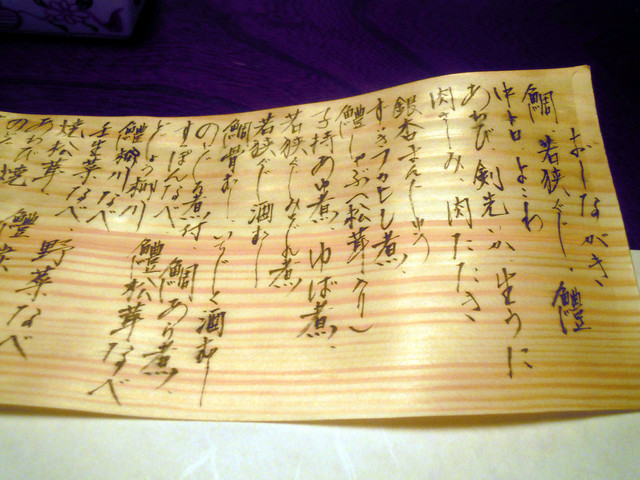 おしながき
鯛、若狭ぐじ、鱧
中トロ、よこわ
あわび、剣先いか、生うに
肉さしみ、肉たたき
銀杏まんじゅう
すっぽん
鱧しゃぶ(松茸入り)
子持あゆ煮、ゆば煮、
若狭ぐじみぞれ煮
若狭ぐじ酒むし
鯛骨むし
酒むし
煮付 鯛あら煮
すっぽんなべ
どじょう柳川
鱧柳川 鱧松茸なべ
壬生菜なべ
焼松茸 野菜なべ
あわび 鱧
焼